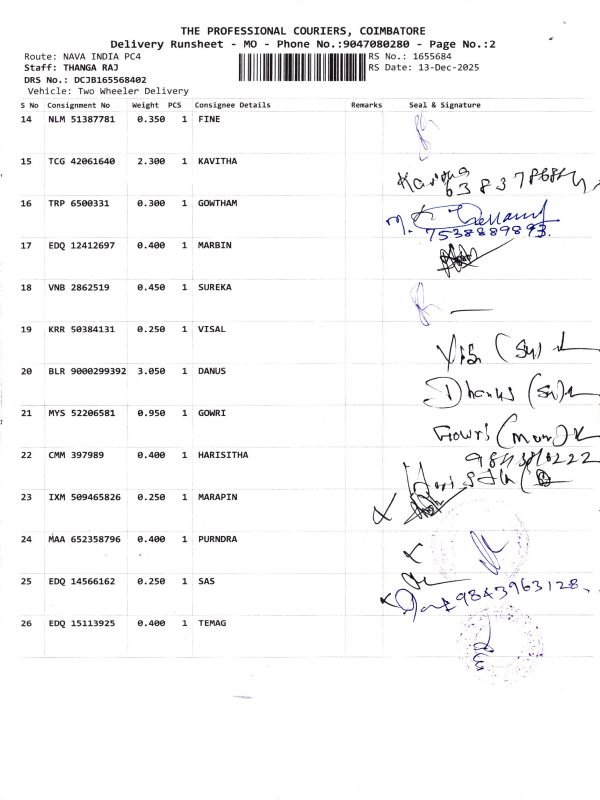 THE PROFESSIONAL COURIERS, COIMBATORE
Delivery Runsheet - MO - Phone No.:9047080280 - Page No.:2
Route: NAVA INDIA PC4 RS No.: 1655684
Staff: THANGA RAJ RS Date: 13-Dec-2025
DRS No.: DCJB165568402
Vehicle: Two Wheeler Delivery
S No Consignment No Weight PCS Consignee Details Remarks Seal & Signature
14 NLM 51387781 0.350 1 FINE
15 TCG 42061640 2.300 1 KAVITHA
16 TRP 6500331 0.300 1 GOWTHAM
7538889893.
17 EDQ 12412697 0.400 1 MARBIN
18 VNB 2862519 0.450 1 SUREKA
19 KRR 50384131 0.250 1 VISAL
20 BLR 9000299392 3.050 1 DANUS
Dhanus
21 MYS 52206581 0.950 1 GOWRI
Gowri
22 CMM 397989 0.400 1 HARISITHA
23 IXM 509465826 0.250 1 MARAPIN
24 MAA 652358796 0.400 1 PURNDRA
25 EDQ 14566162 0.250 1 SAS
9843963128.
26 EDQ 15113925 0.400 1 TEMAG